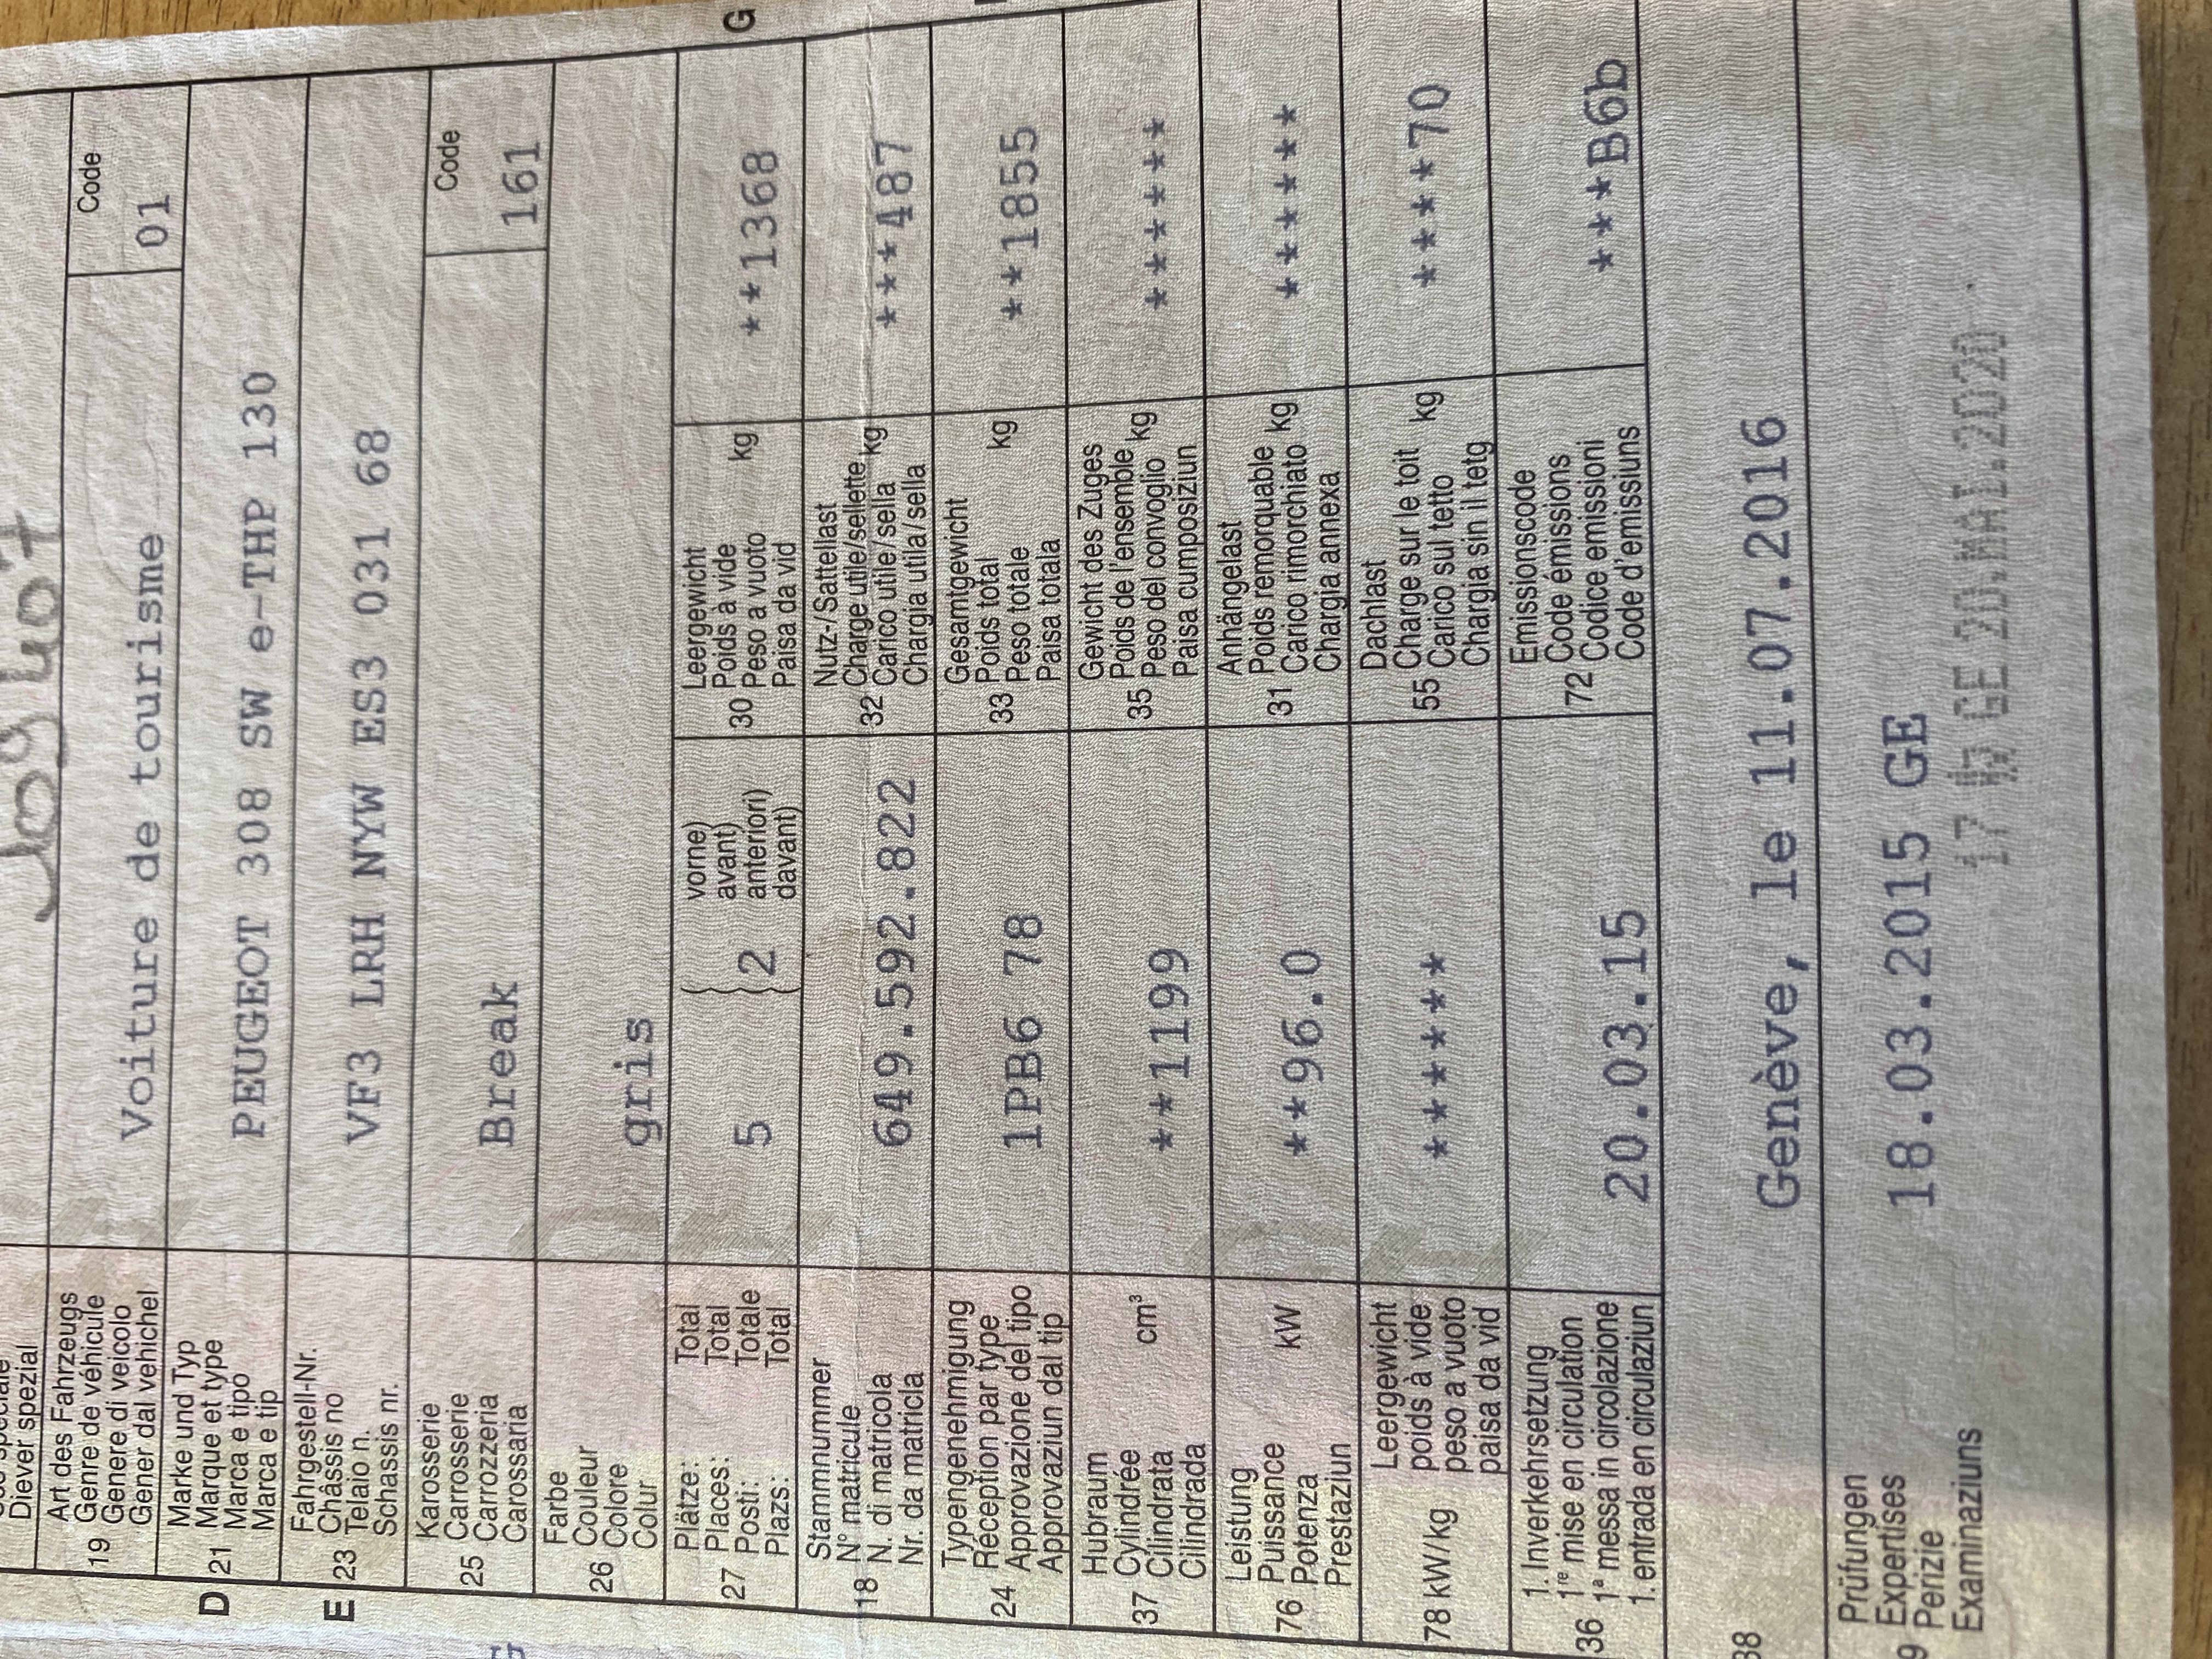 Diever spezial
Art des Fahrzeugs
19 Genre de véhicule
Genere di veicolo
Gener dal vehichel
Voiture de tourisme
Code
01
D
Marke und Typ
21 Marque et type
Marca e tipo
Marca e tip
PEUGEOT 308 SW e-THP 130
E
Fahrgestell-Nr.
23 Châssis no
Telaio n.
Schassis nr.
VF3 LRH NYW ES3 031 68
Karosserie
25 Carrosserie
Carrozzeria
Carossaria
Break
Code
161
Farbe
26 Couleur
Colore
Colur
gris
Plätze: Total
27 Places: Total
Posti: Totale
Plazs: Total
5
2
vorne)
avant)
anteriori)
davant)
G
Leergewicht
30 Poids à vide
Peso a vuoto kg
Paisa da vid
**1368
Stammnummer
18 N° matricule
N. di matricola
Nr. da matricla
649.592.822
Nutz-/Sattellast
32 Charge utile/sellette kg
Carico utile/sella
Chargia utila/sella
***487
Typengenehmigung
24 Réception par type
Approvazione del tipo
Approvaziun dal tip
1PB6 78
Gesamtgewicht
33 Poids total kg
Peso totale
Paisa totala
**1855
Hubraum
37 Cylindrée cm³
Cilindrata
Cilindrada
**1199
Gewicht des Zuges
35 Poids de l'ensemble kg
Peso del convoglio
Paisa cumposiziun
******
Leistung
76 Puissance kW
Potenza
Prestaziun
**96.0
Anhängelast
31 Poids remorquable kg
Carico rimorchiato
Chargia annexa
******
78 kW/kg
Leergewicht
poids à vide
peso a vuoto
paisa da vid
******
Dachlast
55 Charge sur le toit kg
Carico sul tetto
Chargia sin il tetg
****70
1. Inverkehrsetzung
36 1re mise en circulation
1a messa in circolazione
1. entrada en circulaziun
20.03.15
Emissionscode
72 Code émissions
Codice emissioni
Code d'emissiuns
***B6b
38
Genève, le 11.07.2016
Prüfungen
9 Expertises
Perizie
Examinaziuns
18.03.2015 GE
GE 20.MAI.2020